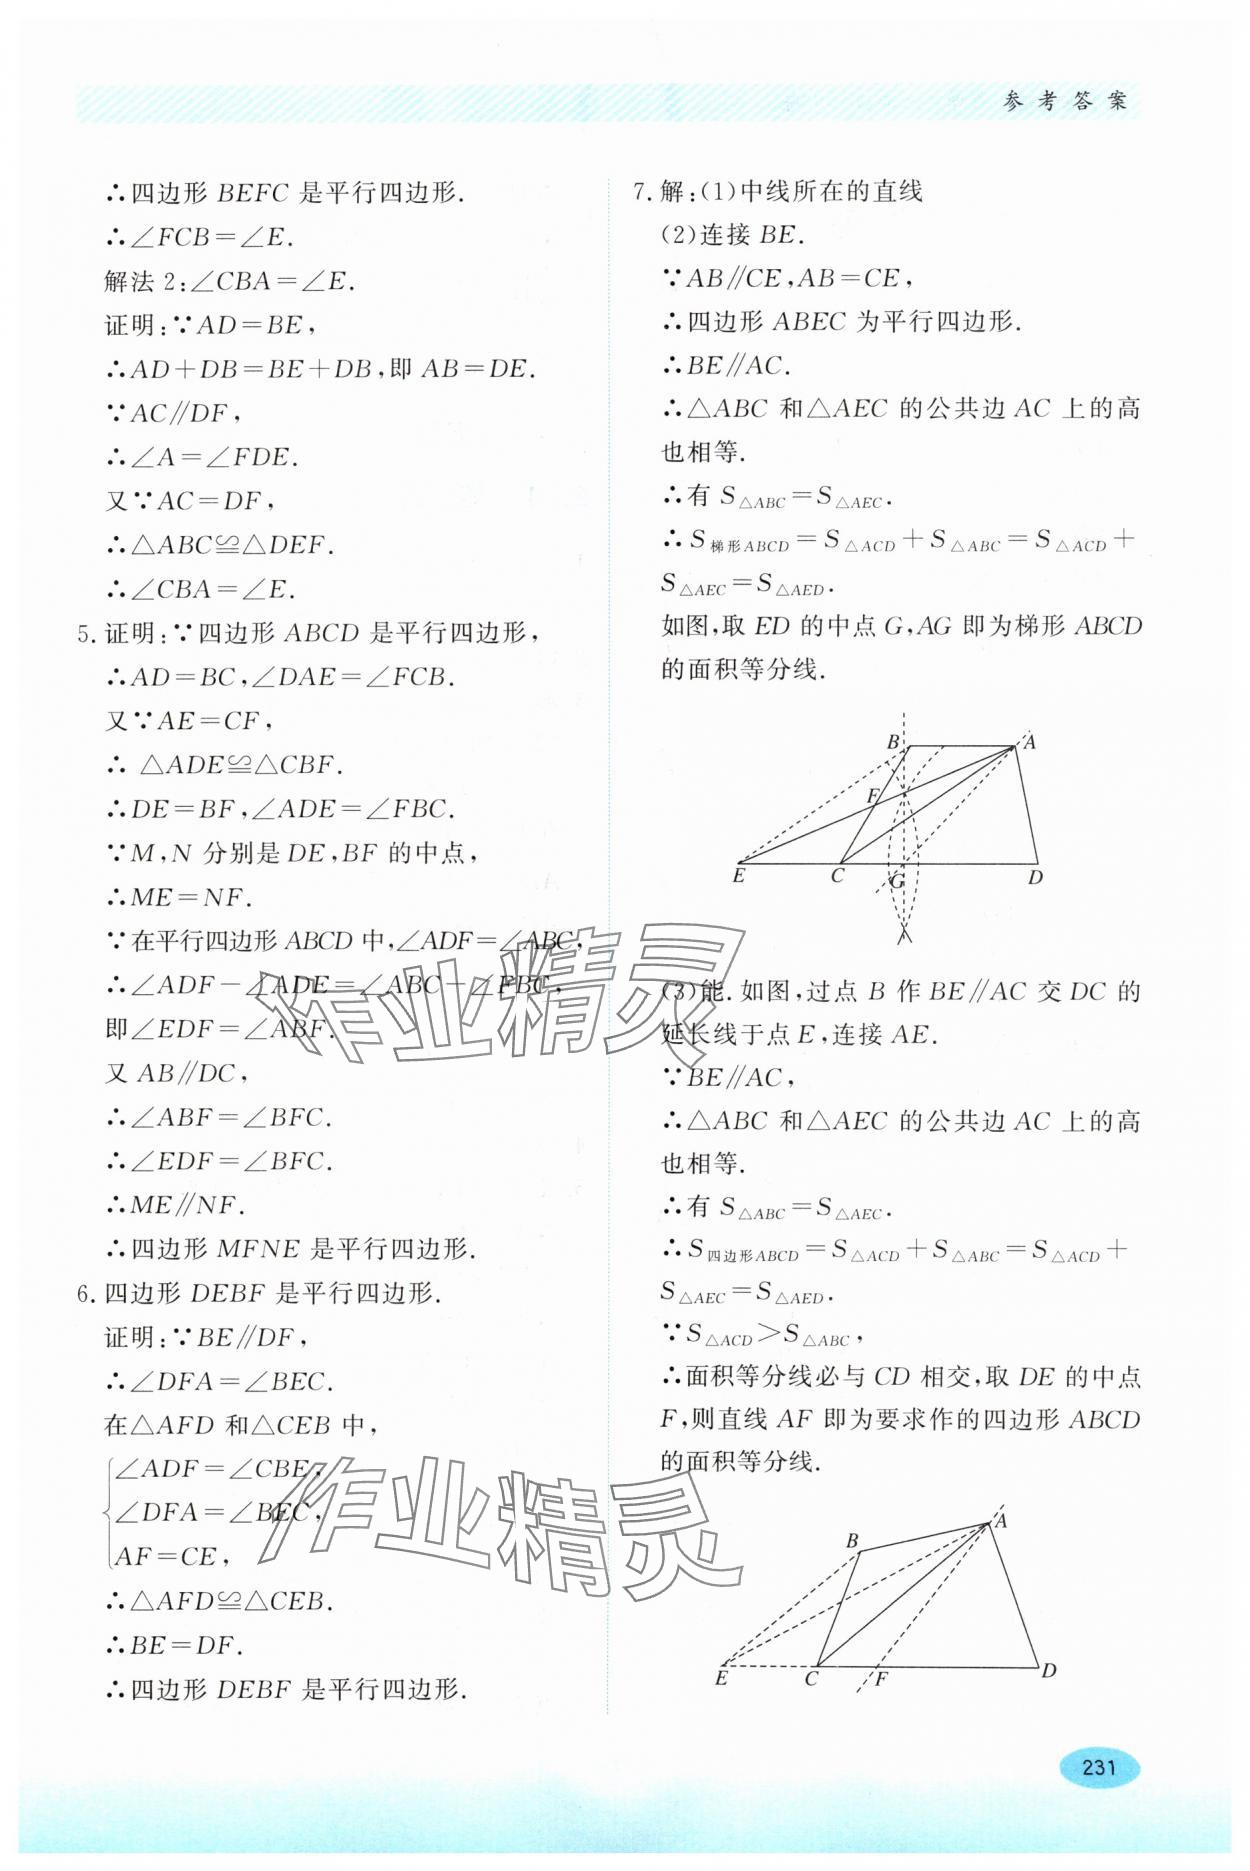 参考答案
∴四边形 BEFC 是平行四边形.
∴∠FCB=∠E.
解法 2:∠CBA=∠E.
证明:∵AD=BE,
∴AD+DB=BE+DB,即 AB=DE.
∵AC∥DF,
∴∠A=∠FDE.
又∵AC=DF,
∴△ABC≌△DEF.
∴∠CBA=∠E.
5. 证明:∵四边形 ABCD 是平行四边形,
∴AD=BC,∠DAE=∠FCB.
又∵AE=CF,
∴ △ADE≌△CBF.
∴DE=BF,∠ADE=∠FBC.
∵M,N 分别是 DE,BF 的中点,
∴ME=NF.
∵在平行四边形 ABCD 中,∠ADF=∠ABC,
∴∠ADF-∠ADE=∠ABC-∠FBC,
即∠EDF=∠ABF.
又 AB∥DC,
∴∠ABF=∠BFC.
∴∠EDF=∠BFC.
∴ME∥NF.
∴四边形 MFNE 是平行四边形.
6. 四边形 DEBF 是平行四边形.
证明:∵BE∥DF,
∴∠DFA=∠BEC.
在△AFD 和△CEB 中,
∠ADF=∠CBE,
∠DFA=∠BEC,
AF=CE,
∴△AFD≌△CEB.
∴BE=DF.
∴四边形 DEBF 是平行四边形.
7. 解:(1)中线所在的直线
(2)连接 BE.
∵AB∥CE,AB=CE,
∴四边形 ABEC 为平行四边形.
∴BE∥AC.
∴△ABC 和△AEC 的公共边 AC 上的高
也相等.
∴有 S△ABC=S△AEC.
∴S梯形ABCD=S△ACD+S△ABC=S△ACD+
S△AEC=S△AED.
如图,取 ED 的中点 G,AG 即为梯形 ABCD
的面积等分线.
B A
F
E C G D
(3)能. 如图,过点 B 作 BE∥AC 交 DC 的
延长线于点 E,连接 AE.
∵BE∥AC,
∴△ABC 和△AEC 的公共边 AC 上的高
也相等.
∴有 S△ABC=S△AEC.
∴S四边形ABCD=S△ACD+S△ABC=S△ACD+
S△AEC=S△AED.
∵S△ACD>S△ABC,
∴面积等分线必与 CD 相交,取 DE 的中点
F,则直线 AF 即为要求作的四边形 ABCD
的面积等分线.
A
B
E C F D
作业精灵
作业精灵
231